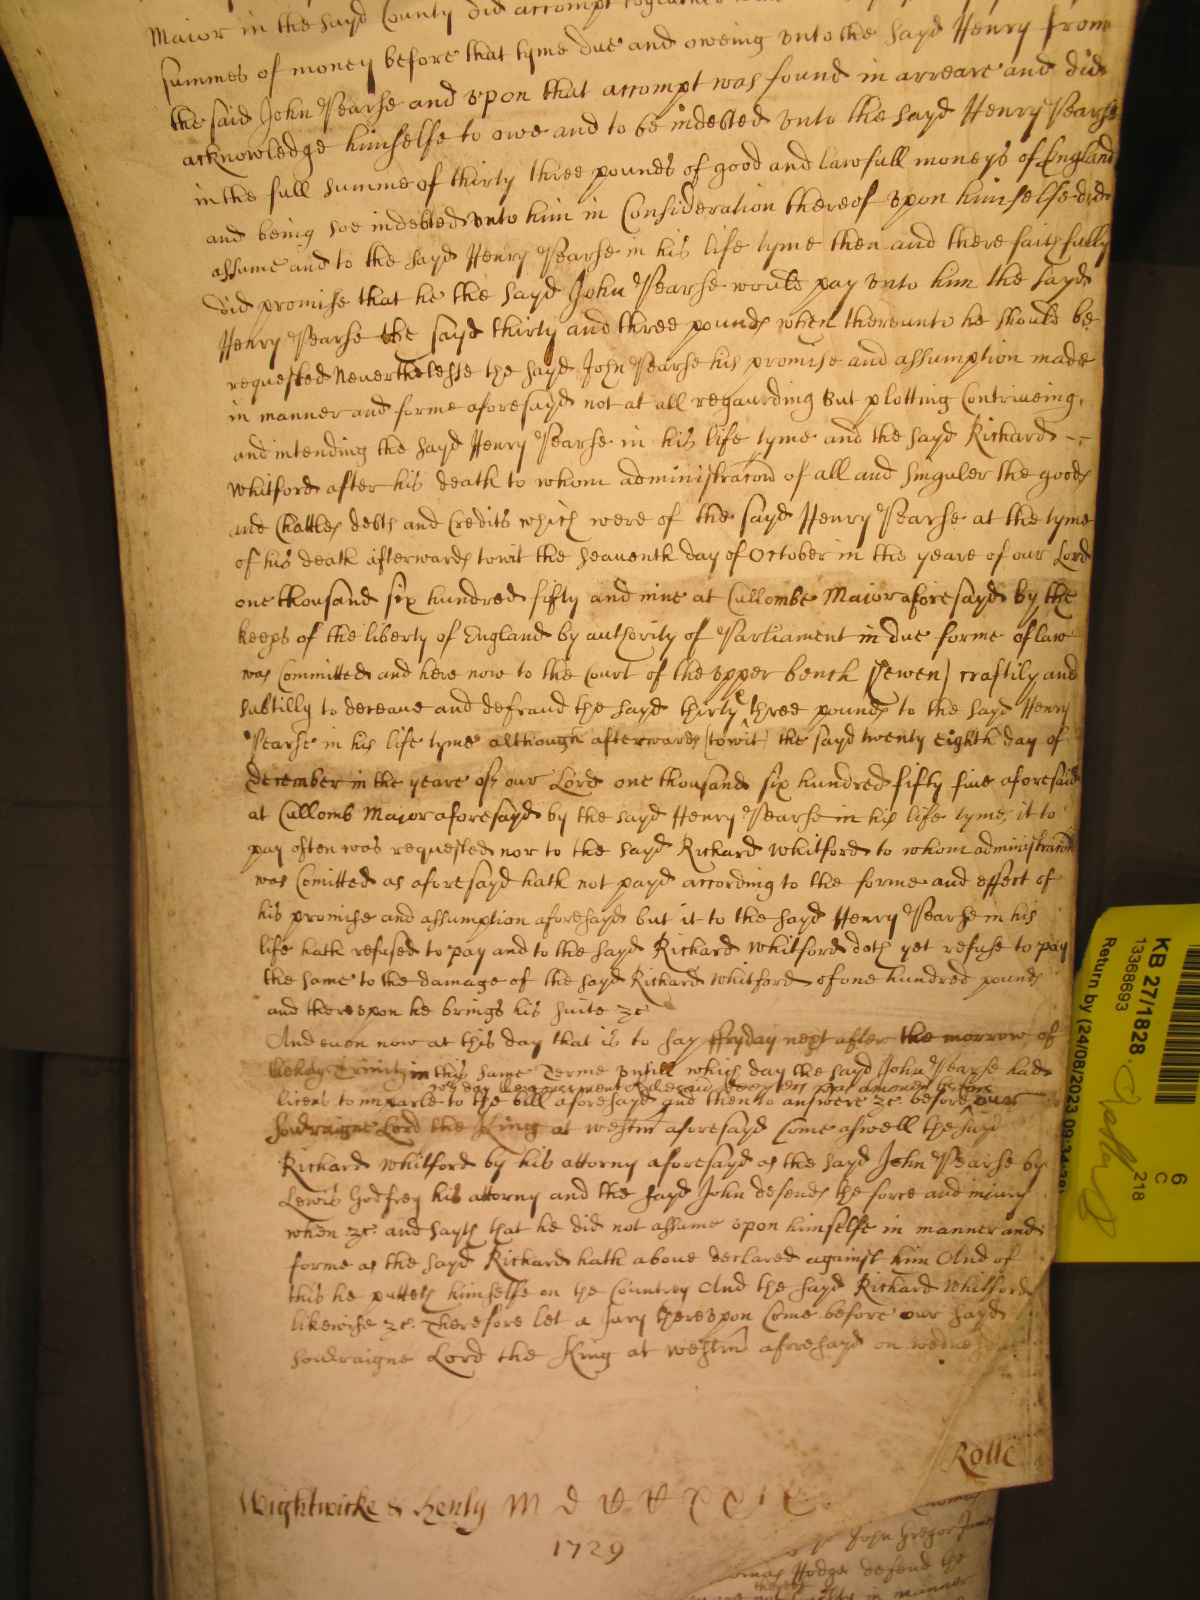 Maior in the sayd County did accompt togeather
summes of money before that tyme due and oweing vnto the sayd Henry from
the said John Pearse and vpon that accompt was found in arreare and did
acknowledge himselfe to owe and to be indebted vnto the sayd Henry Pearse
in the full summe of thirty three pounds of good and lawfull moneys of England
and being soe indebted vnto him in Consideration thereof vpon himselfe did
assume and to the sayd Henry Pearse in his life tyme then and there faithfully
did promise that he the sayd John Pearse would pay vnto him the sayd
Henry Pearse the sayd thirty and three pounds when thereunto he should be
requested Neuerthelesse the sayd John Pearse his promise and assumption made
in manner and forme aforesayd not at all regaurding but plotting Contriueing
and intending the sayd Henry Pearse in his life tyme and the sayd Richard
Whitford after his death to whom administracon of all and singuler the goods
and Chattles debts and Credits which were of the sayd Henry Pearse at the tyme
of his death afterwards towit the seauenth day of October in the yeare of our Lord
one thousand six hundred fifty and nine at Cullombe Maior aforesayd by the
keeps of the liberty of England by authority of Parliament in due forme of law
was Committed and here now to the Court of the vpper bench shewen craftily and
subtilly to deceaue and defraud the sayd thirty three pounds to the sayd Henry
Pearse in his life tyme although afterwards (towit) the sayd twenty eighth day of
December in the yeare of our Lord one thousand six hundred fifty fiue aforesaid
at Cullomb Major aforesayd by the sayd Henry Pearse in his life tyme it to
pay often was requested nor to the sayd Richard Whitford to whom administracon
was Comitted as aforesayd hath not payd according to the forme and effect of
his promise and assumption aforesayd but it to the sayd Henry Pearse in his
life hath refused to pay and to the sayd Richard Whitford doth yet refuse to pay
the same to the damage of the sayd Richard Whitford of one hundred pounds
and therevpon he brings his suite &c
And euen now at this day that is to say ffryday next after the morrow of
the holy Trinity in this same Terme vntill which day the sayd John Pearse had
licens to imparle to the bill aforesayd and then to answere &c before our
Soueraigne Lord the King at Westm aforesayd Come aswell the sayd
Richard Whitford by his attorny aforesayd as the sayd John Pearse by
Lewis Godfrey his attorny and the sayd John defends the force and iniury
when &c and sayth that he did not assume vpon himselfe in manner and
forme as the sayd Richard hath aboue declared against him And of
this he putteth himselfe on the Countrey And the sayd Richard Whitford
likewise &c Therefore let a Jury therevpon Come before our sayd
Soueraigne Lord the King at Westm aforesayd on wednesday
Rolle
Wightwicke & Henly
1729
John Gregor James
Hodge defend the
thereby
in manner
KB 27/1828
13368693
Return by (24/08/2023 09:34:29)
6
C
218